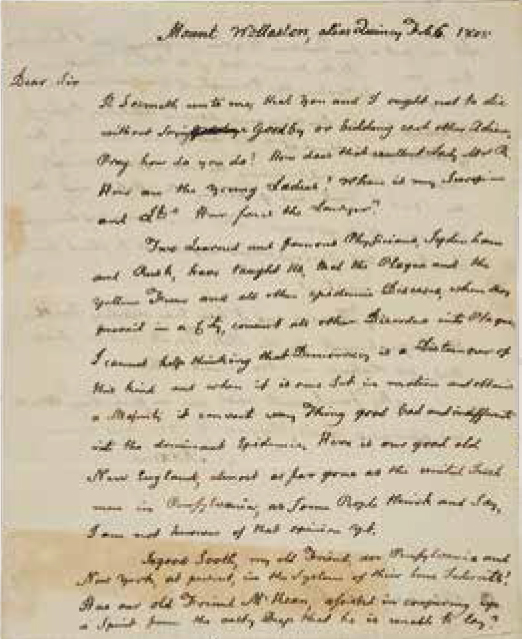 Mount Wollaston, alias Quincy Feb. 6 1805
Dear Sir
It Seemeth unto me, that you and I ought not to die
without Saying Goodby or bidding each other Adieu.
Pray how do you do? How does that excellent Lady Mrs R.
How are the young Ladies? Where is my Surgeon
and Lt? How fares the Lawyer?
Two Learned and famous Physicians, Sydenham
and Rush, have taught Us, that the Plague and the
yellow Fever and all other epidemic Diseases, when they
prevail in a City, convert all other Disorders into Plague.
I cannot help thinking that Democracy is a Distemper of
this kind and when it is once Set in motion and obtains
a Majority it converts every Thing good bad and indifferent
into the dominant Epidemic. Here is our good old
New England, almost as far gone as the
men in Pensylvania, as Some People think and Say,
I am not however of that opinion yet.
In good Sooth, my old Friend, are Pensylvania and
New York, at present, in the System of their true Interests?
Has our old Friend McKean, assisted in conjuring up
a Spirit from the nasty Deep that he is unable to lay?